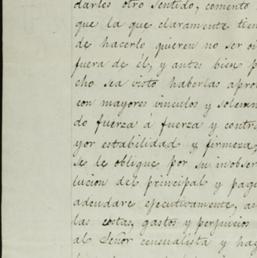 darles otro sentido, comento
que la que claramente tien
de hacerlo quieren no ser oi
fuera de él, y antes bien p
cho sea visto haberlas apro
con mayores vinculos y solemn
do fuerza á fuerza y contr
yor estabilidad y firmeza,
se le obligue por su inobser
lucion del principal y pag
adeudare ejecutivamente, a
las costas, gastos y perjuicios
al Señor censualista y hag